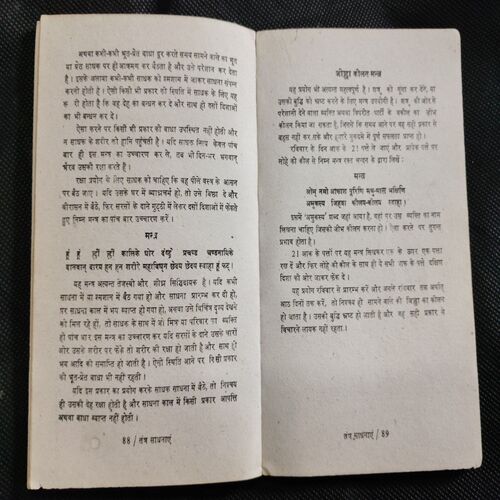 अथवा कभी-कभी भूत-प्रेत बाधा दूर करते समय सामने वाले का भूत
या प्रेत साधक पर ही आक्रमण कर बैठता है और उसे परेशान कर देता
है। इसके अलावा कभी-कभी साधक को श्मशान में जाकर साधना संपन्न
करनी होती है। ऐसी किसी भी प्रकार की स्थिति में साधक के लिए यह
री होता है कि वह देह का बन्धन कर दे और साथ ही दसों दिशाओं
का भी बन्धन कर दे।
ऐसा करने पर किसी भी प्रकार की बाधा उपस्थित नहीं होती और
न साधक के शरीर को हानि पहुंचती है। यदि साधक नित्य केवल पांच
बार ही इस मन्त्र का उच्चारण कर ले, तब भी दिन-भर भगवान्
भैरव उसकी रक्षा करते हैं।
रक्षा प्रयोग के लिए साधक को चाहिए कि वह पीले वस्त्र के आसन
पर बैठ जाए। यदि उसके घर में व्याघ्रचर्म हो, तो उसे बिछा दे और
वीरासन में बैठे, फिर सरसों के दाने मुट्ठी में लेकर दसों दिशाओं में फेंकते
हुए निम्न मन्त्र का पांच बार उच्चारण करे।
मन्त्र
हूं हूं ह्रीं ह्रीं कालिके घोर दंष्ट्रे प्रचण्ड चण्डनायिके
दानवान् दारय हन हन शरीरे महाविघ्न छेदय छेदय स्वाहा हूं फट्।
यह मन्त्र अत्यन्त तेजस्वी और शीघ्र सिद्धिदायक है। यदि कभी
साधना में या श्मशान में बैठ गया हो और साधना प्रारम्भ कर दी हो,
पर साधना काल में भय व्याप्त हो गया हो, अथवा उसे विचित्र दृश्य देखने
को मिल रहे हों, तो साधक के साथ में जो मित्र या परिवार का व्यक्ति
हो पांच बार इस मन्त्र का उच्चारण कर यदि सरसों के दाने उसके चारों
ओर उसके शरीर पर फेंके तो शरीर की रक्षा हो जाती है और साथ ही
भय आदि की समाप्ति हो जाती है। ऐसी स्थिति आने पर किसी प्रकार
की भूत-प्रेत बाधा भी नहीं रहती।
यदि इस प्रकार का प्रयोग करके साधक साधना में बैठे, तो निश्चय
ही उसकी देह रक्षा होती है और साधना काल में किसी प्रकार आपत्ति
अथवा बाधा व्याप्त नहीं होती।
88 / तंत्र साधनाएं
जीह्वा कीलन मन्त्र
यह प्रयोग भी अत्यन्त महत्वपूर्ण है, शत्रु को गूंगा कर देने, या
उसकी बुद्धि को भ्रष्ट करने के लिए मन्त्र उपयोगी है। शत्रु की ओर के
परेशानी देने वाला व्यक्ति अथवा विपरीत पार्टी के वकील का जीभ
कीलन किया जा सकता है, जिससे कि समय आने पर वह सही प्रकार से
बहस नहीं कर सके और हमारे मुकदमे में पूर्ण सफलता प्राप्त हो।
रविवार के दिन आक के 21 पत्ते ले जाएं और प्रत्येक पत्ते पर
लोहे की कील से निम्न मन्त्र रक्त चन्दन के द्वारा लिखे :
मन्त्र
ओम् नमो
अमुकस्य जिह्वा कीलय-कीलय स्वाहा।
इसमें 'अमुकस्य' शब्द जहां आया है, वहां पर उस व्यक्ति का नाम
लिखना चाहिए जिसकी जीभ कीलन करना हो। ऐसा करने पर तुरन्त
प्रभाव होता है।
21 आक के पत्तों पर यह मन्त्र लिखकर एक के ऊपर एक पत्ता
रख दें और फिर लोहे की कील के साथ ही वे सभी आक के पत्ते दक्षिण
दिशा की ओर जाकर फेंक दें।
यह प्रयोग रविवार से प्रारम्भ करें और अगले रविवार तक अर्थात्
आठ दिनों तक करें, तो निश्चय ही सामने वाले की जिह्वा का कीलन
हो जाता है। उसकी बुद्धि भ्रष्ट हो जाती है और वह सही प्रकार से
विचारने लायक नहीं रहता।
तंत्र साधनाएं / 89